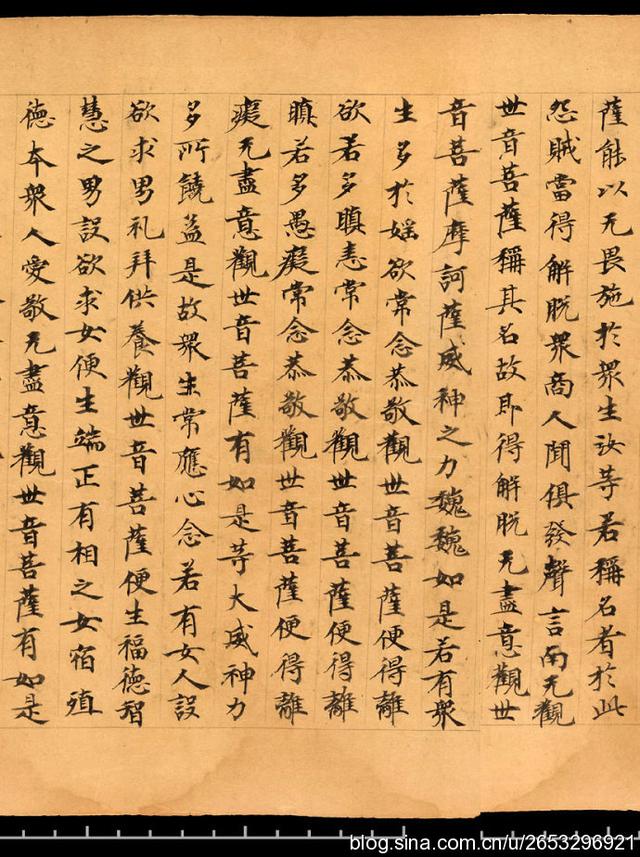 薩能以无畏施於衆生汝等若稱名者於此
怨賊當得解脫衆商人聞俱發聲言南无觀
世音菩薩稱其名故即得解脫无盡意觀世
音菩薩摩訶薩威神之力巍巍如是若有衆
生多於婬欲常念恭敬觀世音菩薩便得離
欲若多瞋恚常念恭敬觀世音菩薩便得離
瞋若多愚癡常念恭敬觀世音菩薩便得離
癡无盡意觀世音菩薩有如是等大威神力
多所饒益是故衆生常應心念若有女人設
欲求男礼拜供養觀世音菩薩便生福德智
慧之男設欲求女便生端正有相之女宿殖
德本衆人愛敬无盡意觀世音菩薩有如是
blog.sina.com.cn/u/2653296921